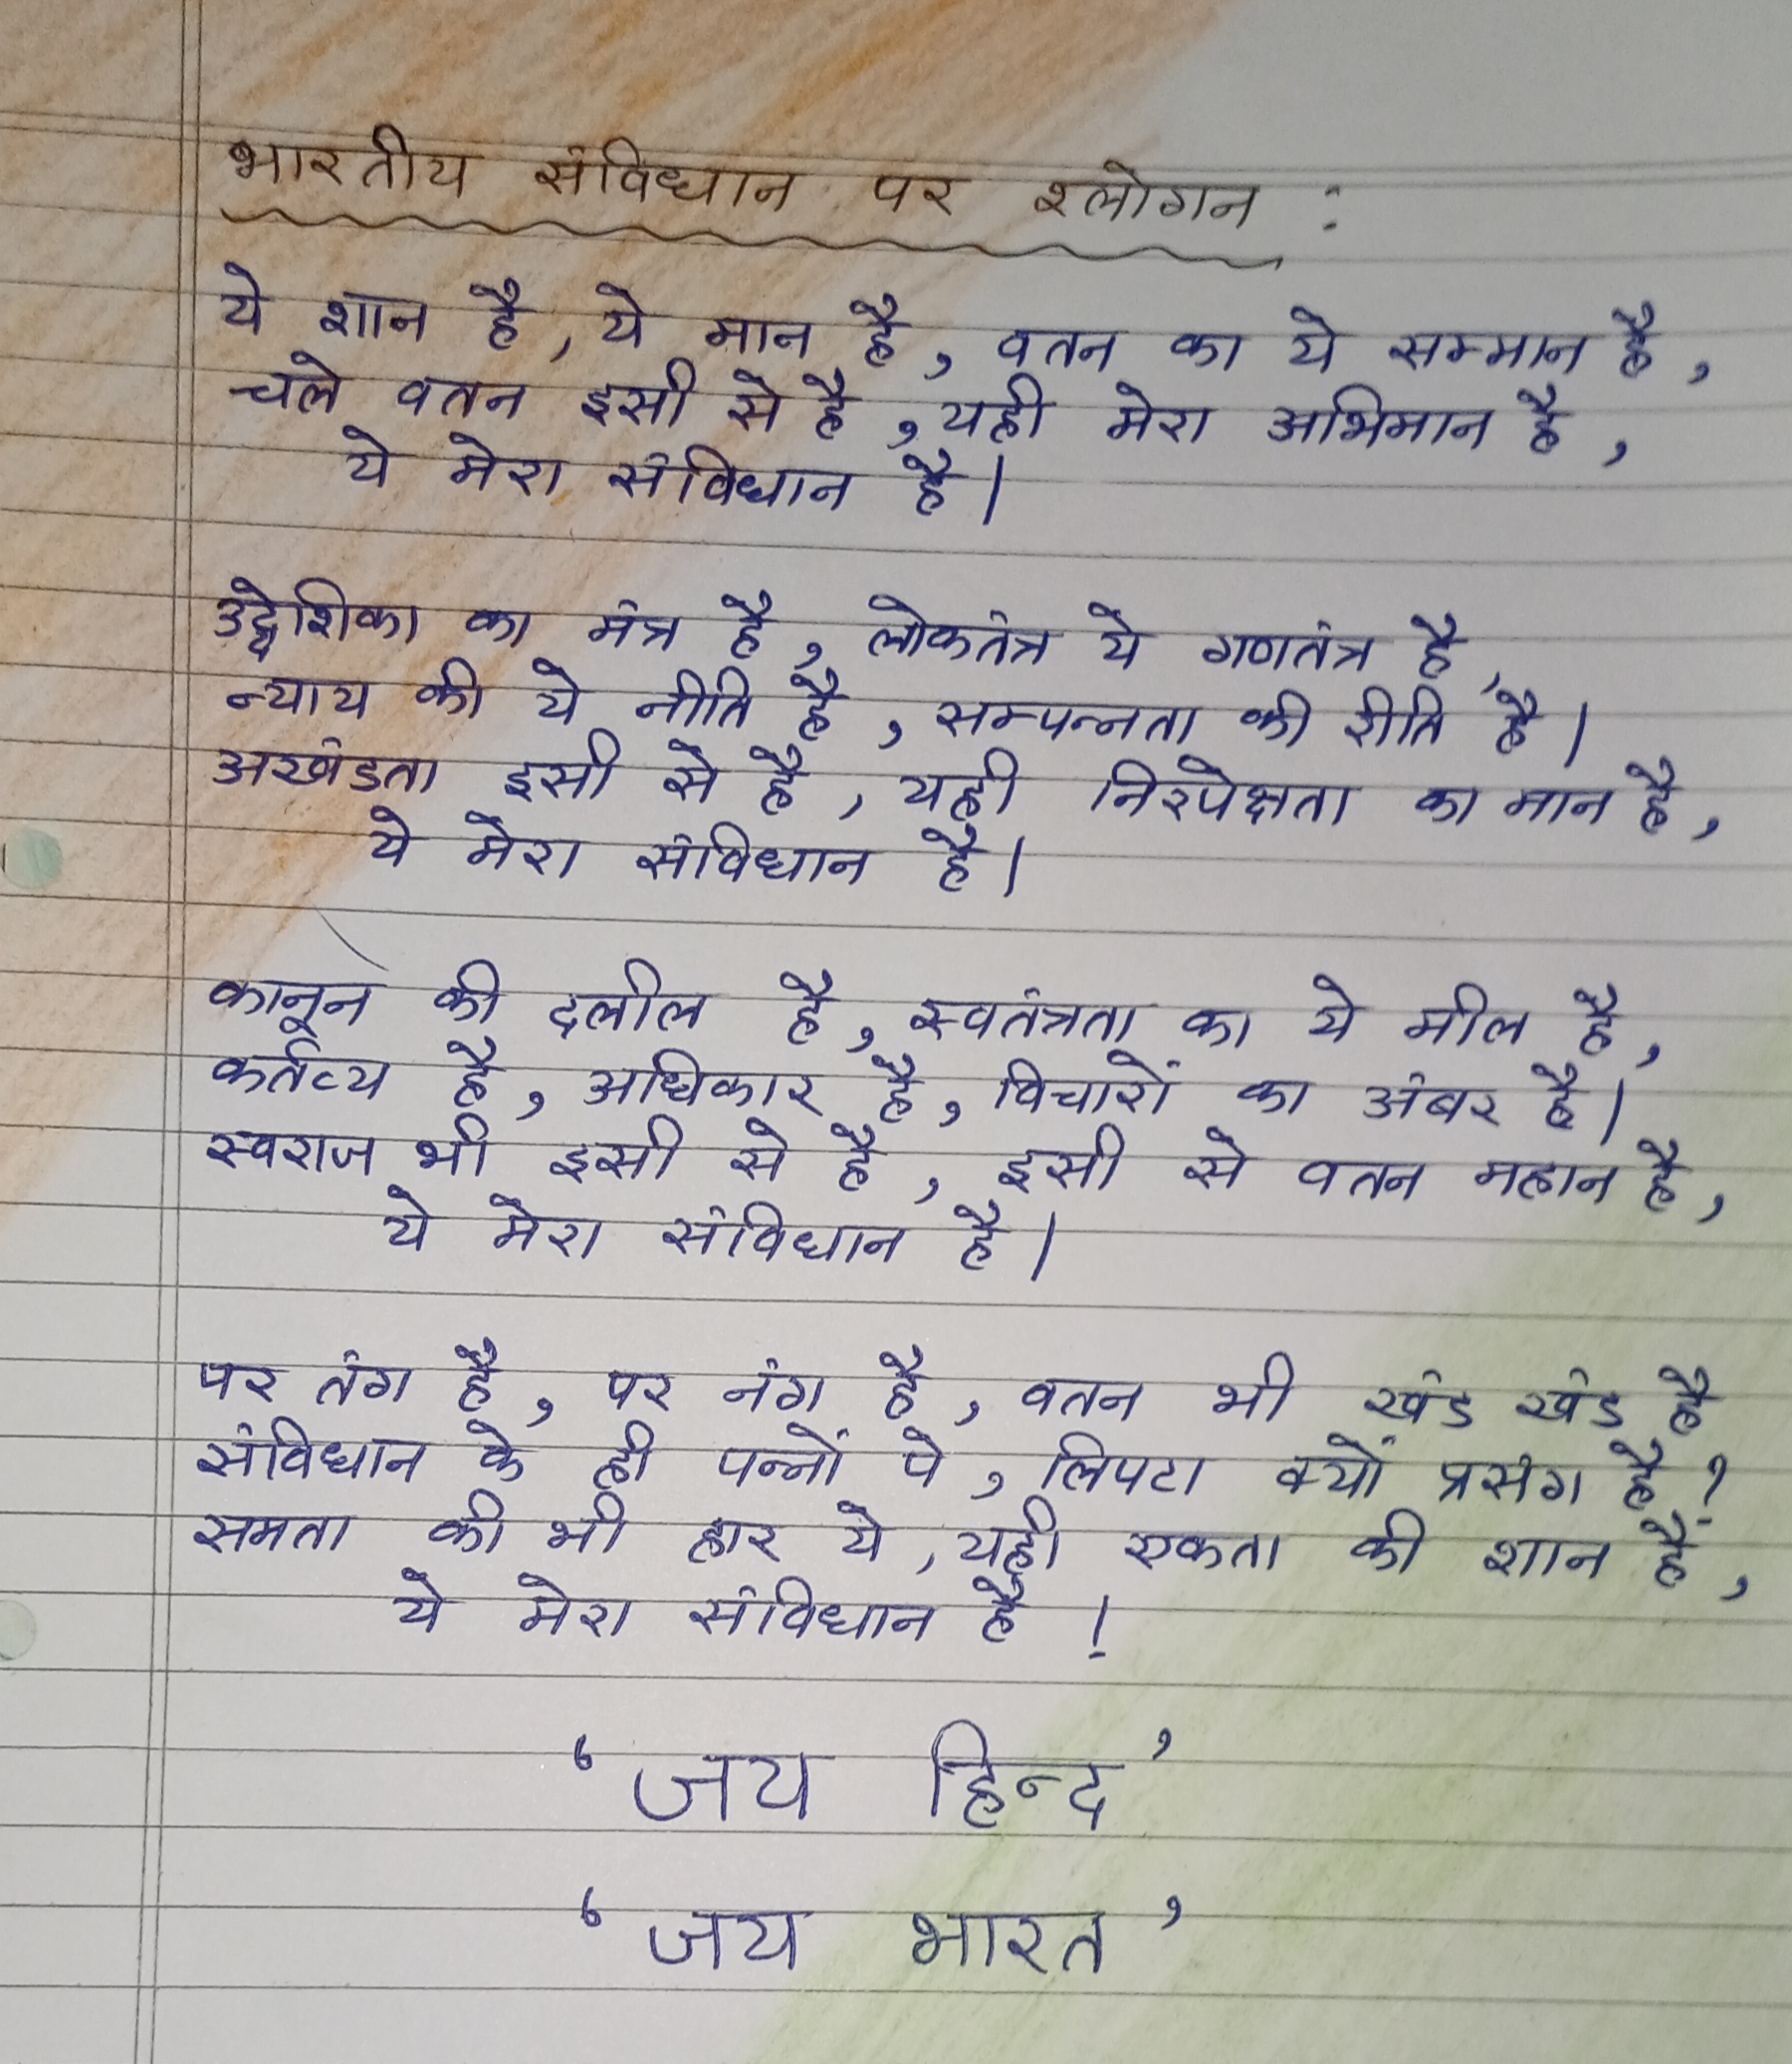 भारतीय संविधान पर श्लोगन :
ये शान है, ये मान है, वतन का ये सम्मान है,
चले वतन इसी से है, यही मेरा अभिमान है,
ये मेरा संविधान है।
उद्देशिका का मंत्र है, लोकतंत्र ये गणतंत्र है,
न्याय की ये नीति है, सम्पन्नता की रीति है।
अखंडता इसी से है, यही निरपेक्षता का मान है,
ये मेरा संविधान है।
कानून की दलील है, स्वतंत्रता का ये मील है,
कर्तव्य है, अधिकार है, विचारों का अंबर है।
स्वराज भी इसी से है, इसी से वतन महान है,
ये मेरा संविधान है।
पर तंग है, पर नंग है, वतन भी खंड खंड है
संविधान के ही पन्नों पे, लिपटा क्यों प्रसंग है?
समता की भी हार ये, यही एकता की शान है,
ये मेरा संविधान है !
‘जय हिन्द’
‘जय भारत’